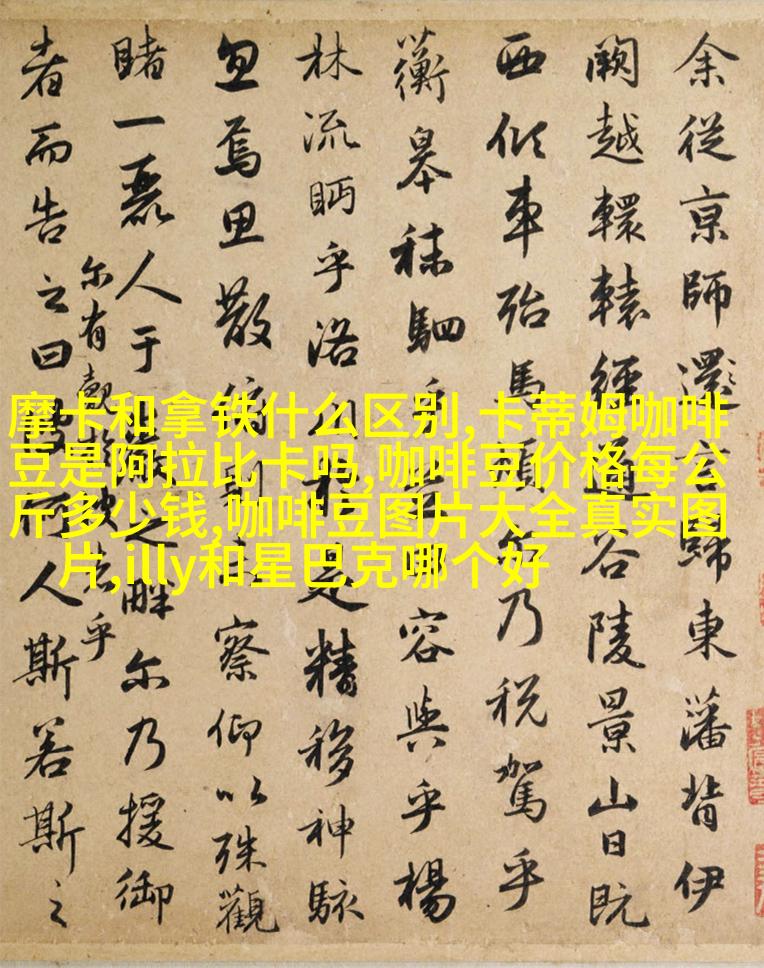 余從京師還言歸東藩背伊
闕越轘轅經通谷陵景山日既
西傾車殆馬煩尔乃税駕乎
蘅皋秣駟乎芝田容與乎楊
林流眄乎洛川於是精移神駭
忽焉思散俯則未察仰以殊觀
睹一麗人于巖之畔尔乃援御
者而告之曰彼何人斯若斯之
尔有覿於彼者乎
摩卡和拿铁什么区别,卡蒂姆咖啡
豆是阿拉比卡吗,咖啡豆价格每公
斤多少钱,咖啡豆图片大全真实图
片,illy和星巴克哪个好